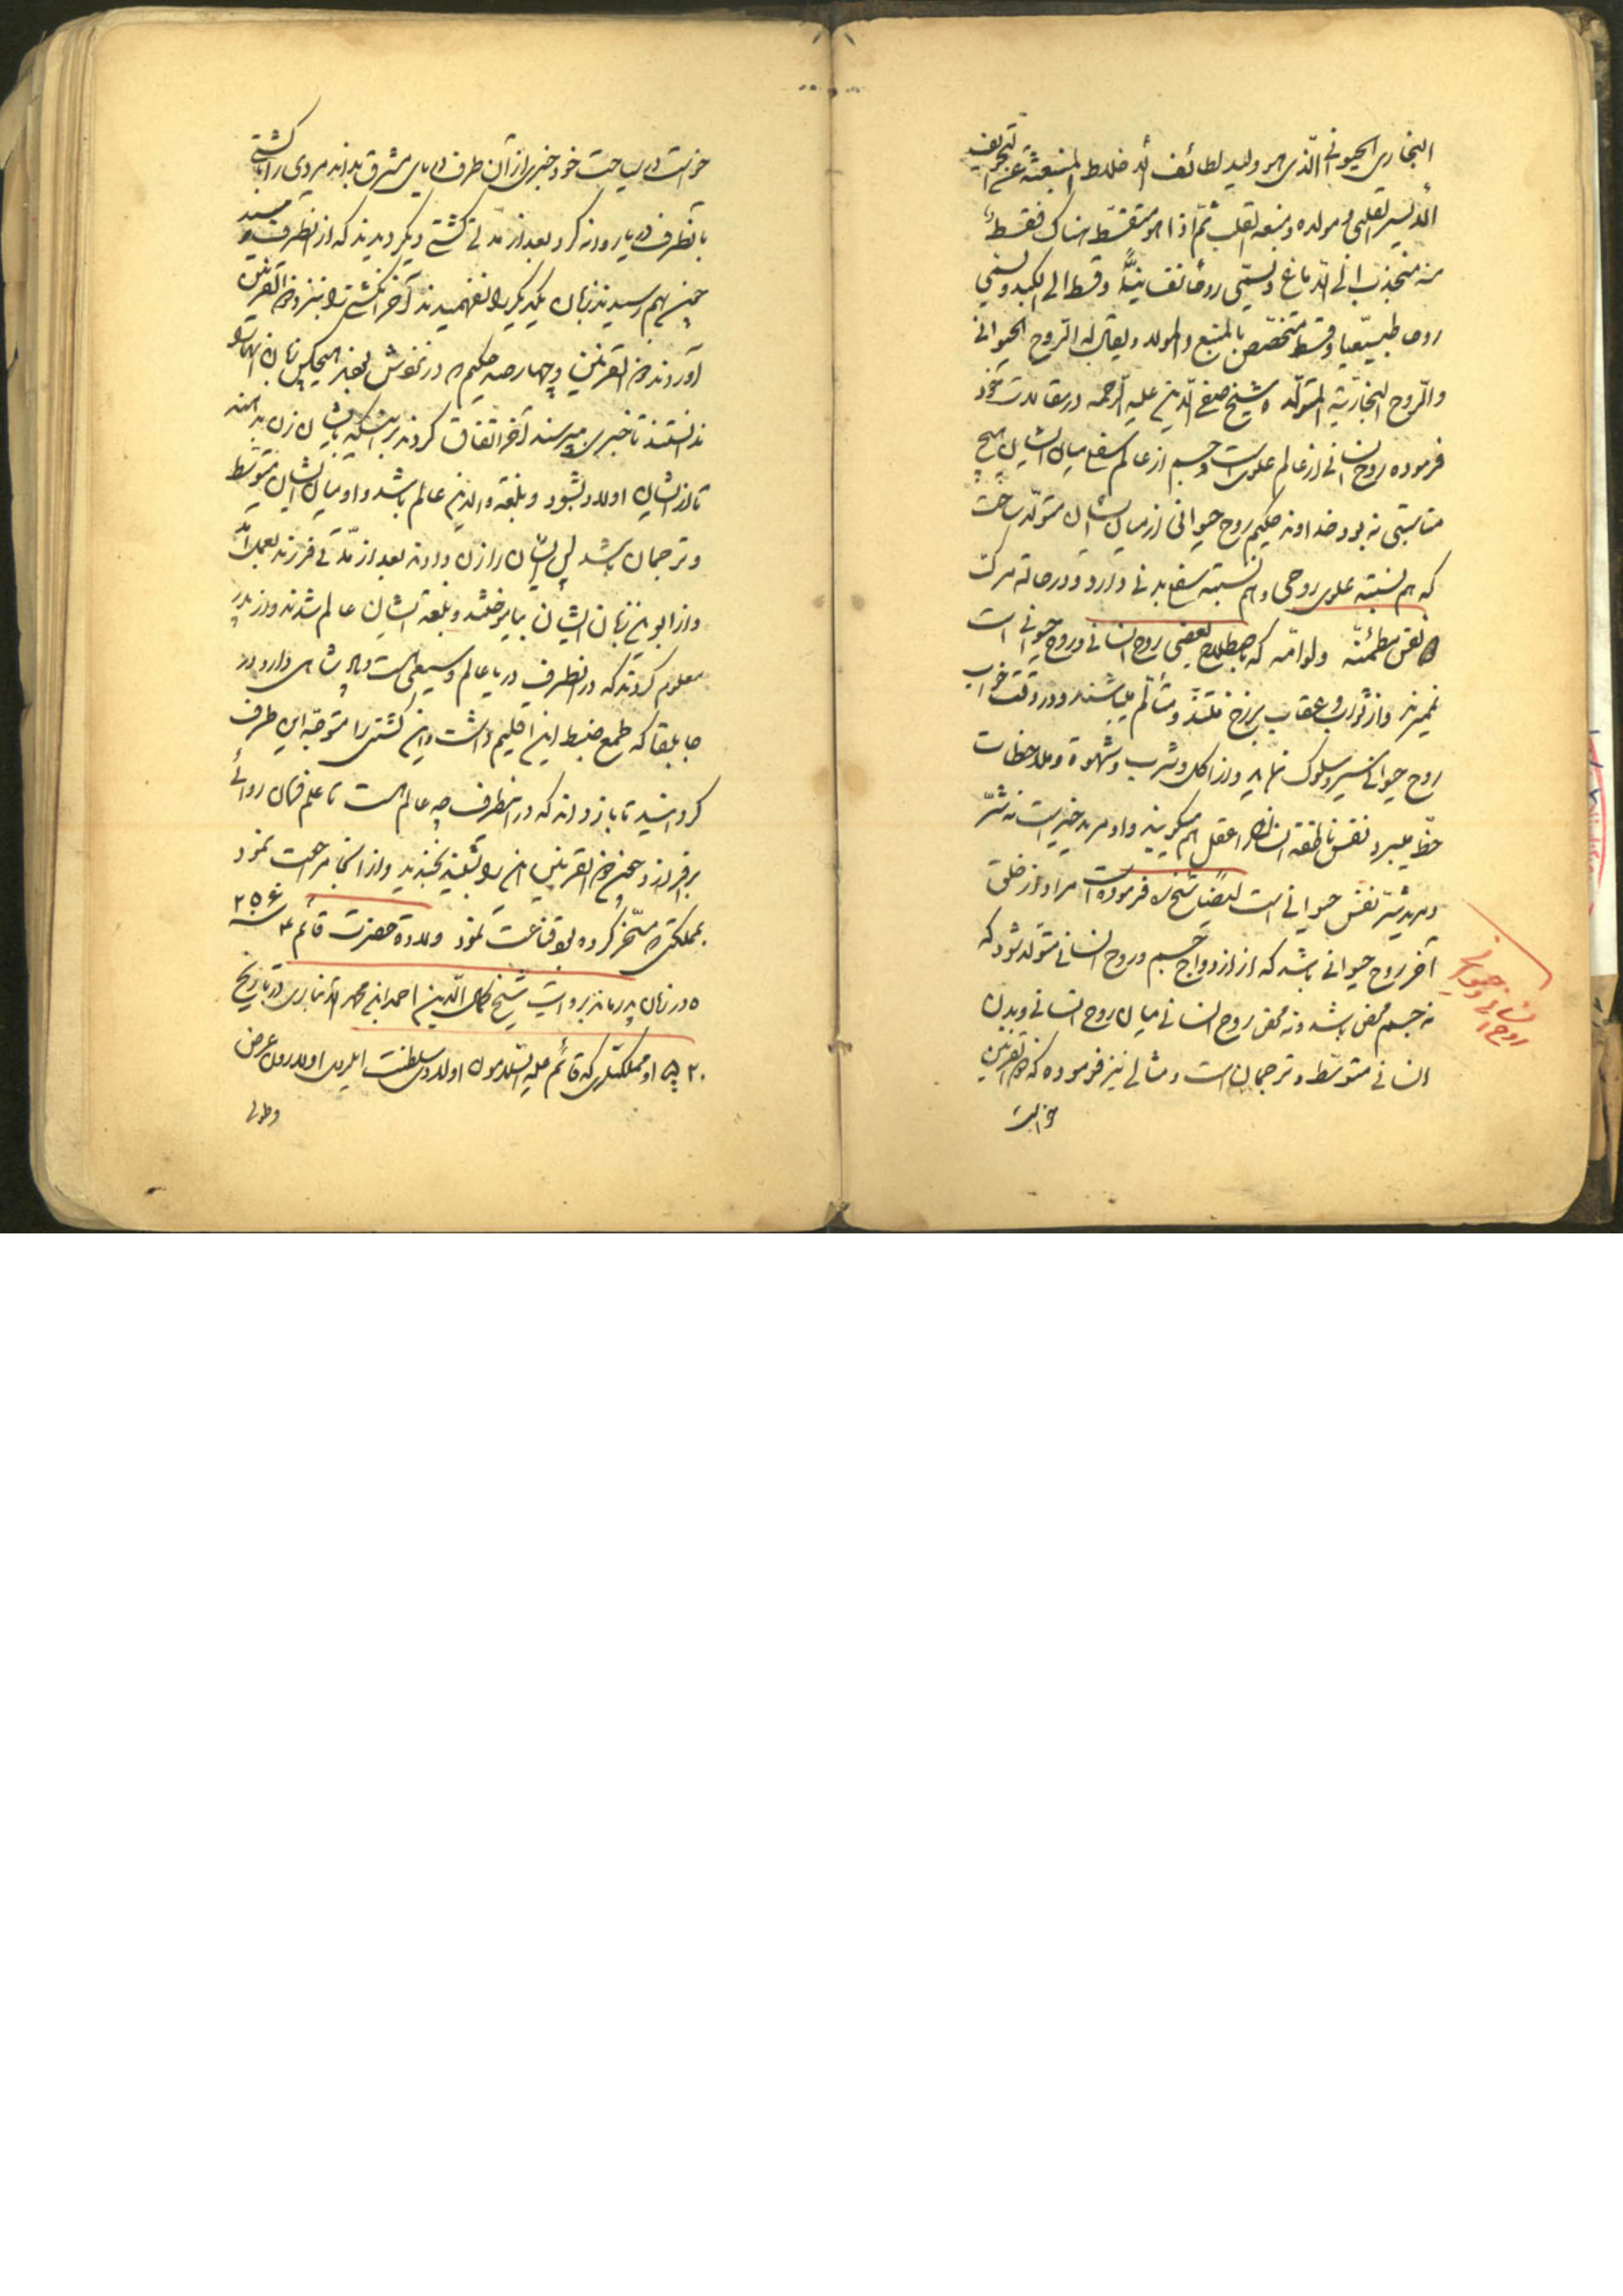 البخاری الحیوانی الذی هو ولید لطائف الاخلاط المنبعثة عن التجویف
الایسر القلبی مولده و منبعه القلب ثم اذا هو متقسط هناک فقسط
منه منجذب الی الدماغ و یسمی روحا نفسانیا و قسط الی الکبد و یسمی
روحا طبیعیا و قسط متخصص بالمنبع والمولد و یقال له الروح الحیوانی
والروح البخاریة المتولد ه شیخ صفی الدین علیه الرحمه در مقالات خود
فرموده روح انسانی از عالم علویست و جسم از عالم سفلی میان ایشان هیچ
مناسبتی نه بود خداوند حکیم روح حیوانی از میان ایشان متولد ساخت
که هم نسبته علوی روحی و هم نسبته سفلی بدنی دارد و در حالة مرکت
نفس مطمئنه ولوامه که باصطلاح بعضی روح انسانی و روح حیوانی است
نمیرند و از ثواب و عقاب برزخ متلذذ و متألم میباشند و در وقت خواب
روح حیوانی سیر و سلوک نماید و از اکل و شرب و شهوة و ملاحظات
حظ میبرد نفس ناطقه انسانی را عقل هم میگویند و او مرید خیر است نه شر
و مرید شر نفس حیوانی است ایضا شیخ ره فرموده است مراد از خلق
آخر روح حیوانی باشد که از ازدواج جسم و روح انسانی متولد شود که
نه جسم محض باشد و نه محض روح انسانی میان روح انسانی و بدن
انسانی متوسط و ترجمان است و مثالی نیز فرموده که ذو القرنین
خواست
روح انسانی و حیوانی
خواست در سیاحت خود خبری از آن طرف دریای مشرق بداند مردی را با کشتی
بآنطرف دریا روانه کرد بعد از مدتی کشتی دیگر دیدند که از آنطرف میآید
چون بهم رسیدند زبان یکدیگر را نفهمیدند آخر آن کشتی را بنزد ذو القرنین
آوردند ذو القرنین و چهار صد حکیم که در رکابش بودند هیچکس زبان آنها را
ندانستند تا خبری بپرسند آخر اتفاق کردند بر اینکه بایشان زن بدهند
تا از ایشان اولاد بشود و بلغة والدین عالم باشد و او میان ایشان متوسط
و ترجمان باشد پس ایشان را زن دادند بعد از مدتی فرزند بعمل آمد
و از ابوین زبان ایشان بیاموختند و بلغة ایشان عالم شدند و از پدر
معلوم کردند که در آنطرف دریا عالم وسیعی است و پادشاهی دارد در
جابلقا که طمع ضبط این اقلیم داشت و این کشتی را متوجه این طرف
گردانید تا باز داند که در اینطرف چه عالم است تا علم فرمان روائی
برافرازد چون ذو القرنین این را شنید بخندید و از آنجا مراجعت نمود
بمملکتی که مسخر کرده بود قناعت نمود ولادة حضرت قائم ع سنه ۲۵۶
ه در زمان پدر ماند بروایت شیخ کمال الدین احمد ابن محمد الانباری در تاریخ
۵۲۰ او مملکتلری که قائم علیه السلامون اولادی سلطنت ایلر اولارون عرض
و طولی